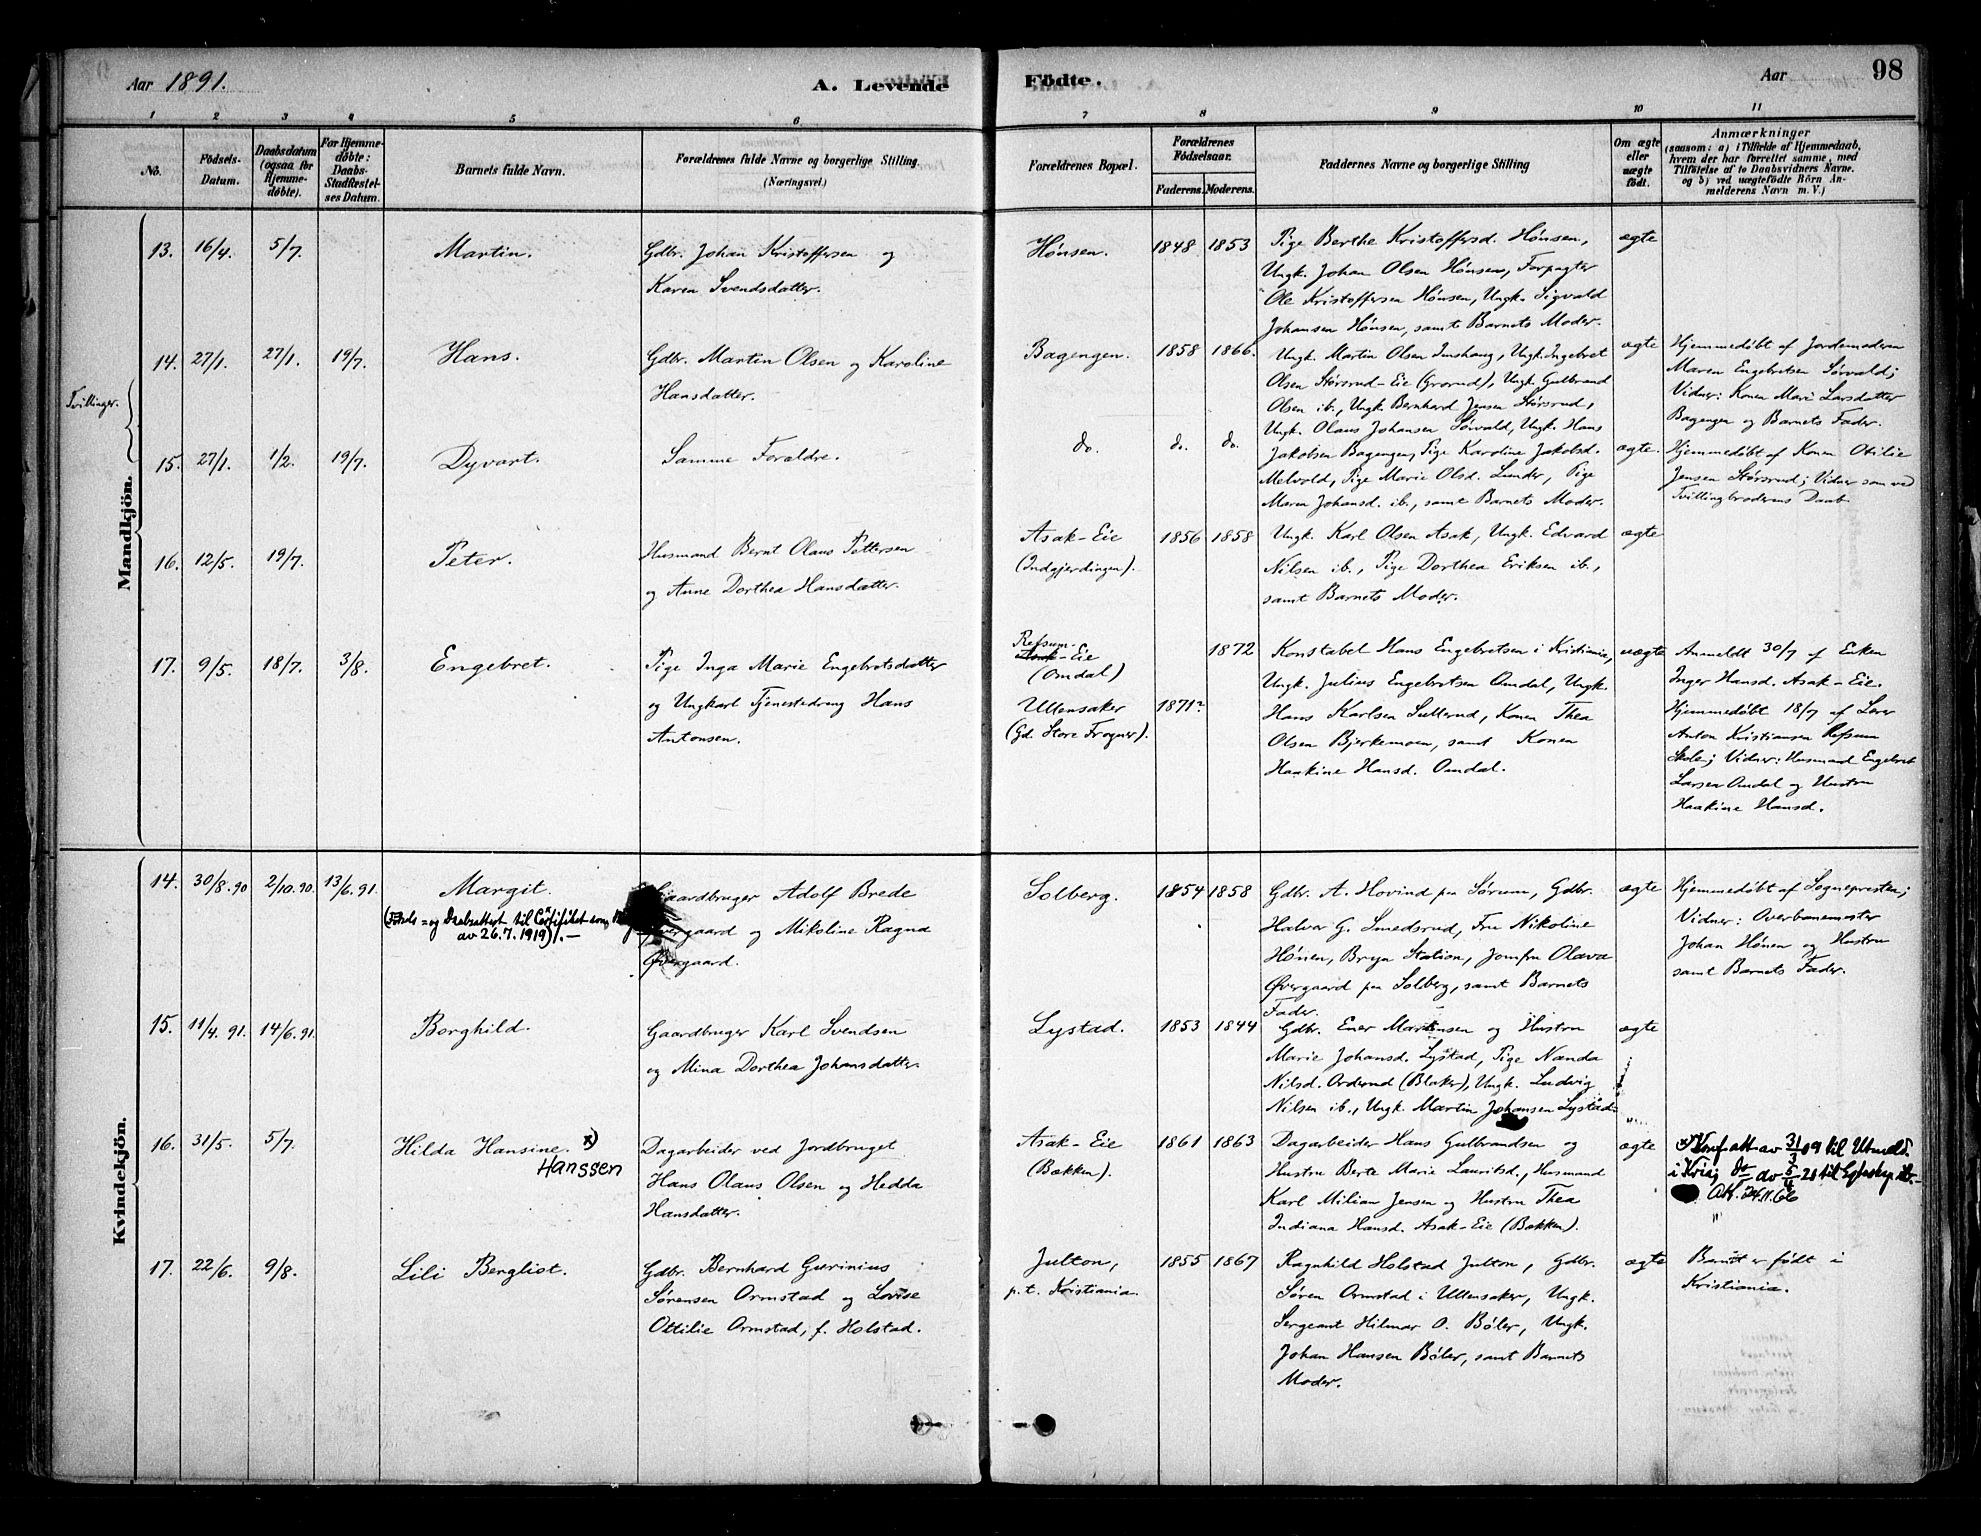 Aar 1891.
A. Levende
Födte.
Aar
98
1 2 3 4 5 6 7 8 9 10 11
No.
Födsels-
Datum.
Daabsdatum
(ogsaa for
Hjemme-
døbte).
For Hjemme-
døbte:
Daabs-
Stadfæstel-
ses Datum.
Barnets fulde Navn.
Forældrenes fulde Navne og borgerlige Stilling.
(Næringsvei.)
Forældrenes Bopæl.
Forældrenes
Födselsaar.
Faderens. Moderens.
Faddernes Navne og borgerlige Stilling
Om ægte
eller
uægte
født.
Anmærkninger
(saasom: a) i Tilfælde af Hjemmedaab,
hvem der har forrettet samme, med
Tilföielse af to Daabsvidners Navne.
og b) ved uægtefödte Börn An-
melderens Navn m. V.)
Mandkjön.
13. 16/4. 5/7.
Martin.
Gdbr. Johan Kristoffersen og
Karen Svendsdatter.
Hónsen. 1848 1853
Pige Berthe Kristoffersd. Hónsen,
Ungk. Johan Olsen Hónsen, Forpagter
Ole Kristoffersen Hónsen, Ungk. Sigvald
Johansen Hónsen, samt Barnets Moder.
ægte
Tvillinger.
14. 27/1. 27/1. 19/7.
Hans.
Gdbr. Martin Olsen og Karoline
Hansdatter.
Bagengen. 1858 1866.
Ungk. Martin Olsen Imshaug, Ungk. Ingebret
Olsen Stórsrud-Eie (Grorud), Ungk. Gulbrand
Olsen ib., Ungk. Bernhard Jensen Stórsrud,
Ungk. Olaus Johansen Sórvald, Ungk. Hans
Jakobsen Bagengen, Pige Karoline Jakobsd.
Melvold, Pige Marie Olsd. Lunder, Pige
Maren Johansd. ib., samt Barnets Moder.
ægte
Hjemmedøbt af Jordemoderen
Maren Engebretsen Sórvald;
Vidner: Konen Mari Larsdatter
Bagengen og Barnets Fader.
15. 27/1. 1/2. 19/7.
Dyvart.
Samme Forældre.
do. do. do.
ægte.
Hjemmedøbt af Konen Otilie
Jensen Stórsrud; Vidner som ved
Tvillingbroderens Daab
16. 12/5. 19/7.
Peter.
Husmand Bernt Olaus Pettersen
og Anne Dorthea Hansdatter.
Asak-Eie
(Indgjerdingen).
1856 1858
Ungk. Karl Olsen Asak, Ungk. Edvard
Nilsen ib., Pige Dorthea Eriksen ib.,
samt Barnets Moder.
ægte
17. 9/5. 18/7. 3/8.
Engebret.
Pige Inga Marie Engebretsdatter
og Ungkarl Tjenestedreng Hans
Antonsen.
Refsum-
Asak-Eie
(Omdal)
Ullensaker
(Gd. Store Frogner).
1872
1871?
Konstabel Hans Engebretsen i Kristiania,
Ungk. Julius Engebretsen Omdal, Ungk.
Hans Karlsen Sullerud, Konen Thea
Olsen Bjerkemoen, samt Konen
Haakine Hansd. Omdal.
uægte
Anmeldt 30/7 af Enken
Inger Hansd. Asak-Eie.
Hjemmedøbt 18/7 af Lærer
Anton Kristiansen Refsum
Skole; Vidner: Husmand Engebret
Larsen Omdal og Hustru
Haakine Hansd.
Kvindekjön.
14. 30/8.90 2/10.90. 13/6.91.
Margit.
(Føds- og Daabsattest til
av 26.7.1919).—
Gaardbruger Adolf Brede
Øvergaard og Mikoline Ragna
Øvergaard.
Solberg. 1854 1858
Gdbr. A. Hovind paa Sórum, Gdbr.
Halvor G. Smedsrud, Fru Nikoline
Hónen, Bryn Station, Jomfru Olava
Øvergaard paa Solberg, samt Barnets
Fader.
ægte
Hjemmedøbt af Sognepresten;
Vidner: Overbanemester
Johan Hónen og Hustru
samt Barnets Fader.
15. 11/4.91. 14/6.91.
Borghild.
Gaardbruger Karl Svendsen
og Mina Dorthea Johansdatter.
Lystad. 1853 1844
Gdbr. Ener Martinsen og Hustru
Marie Johansd. Lystad, Pige Nanda
Nilsd. Orderud (Blaker), Ungk. Ludvig
Nilsen ib., Ungk. Martin Johansen Lystad.
ægte
16. 31/5. 5/7.
Hilda Hansine. x)
Hanssen
Dagarbeider ved Jordbruget
Hans Olaus Olsen og Hedda
Hansdatter.
Asak-Eie
(Bakken).
1861 1863
Dagarbeider Hans Gulbrandsen og
Hustru Berte Marie Lauritsd., Husmand
Karl Milian Jensen og Hustru Thea
Indiana Hansd. Asak-Eie (Bakken).
ægte
x) Konf.att. av 31/3 09 til Utmeld.
i Kria; do av 5/6-20 til Egteskap ib.-
24.11.66
17. 22/6. 9/8.
Lili Bergliot.
Gdbr. Bernhard Guvinius
Sørensen Ormstad og Lovise
Ottilie Ormstad, f. Holstad.
Julton,
p.t. Kristiania.
1855 1867
Ragnhild Holstad Julton, Gdbr.
Søren Ormstad i Ullensaker, Ungk.
Sergeant Hilmar O. Bóler, Ungk.
Johan Hansen Bóler, samt Barnets
Moder.
ægte
Barnet er født i
Kristiania.